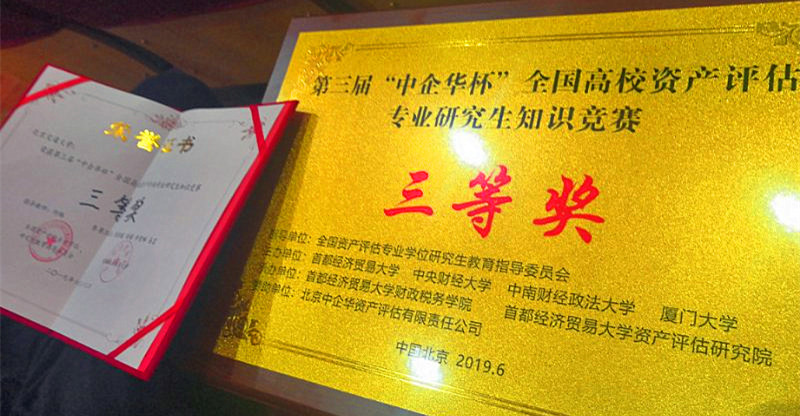 荣誉证书
北京交通大学:
荣获第三届“中企华杯”全国高
三等奖
第三届“中企华杯”全国高校资产评估
专业研究生知识竞赛
三等奖
指导单位：全国资产评估专业学位研究生教育指导委员会
主办单位：首都经济贸易大学 中央财经大学 中南财经政法大学 厦门大学
承办单位：首都经济贸易大学财政税务学院 首都经济贸易大学资产评估研究院
赞助单位：北京中企华资产评估有限责任公司
中国北京 2019.6